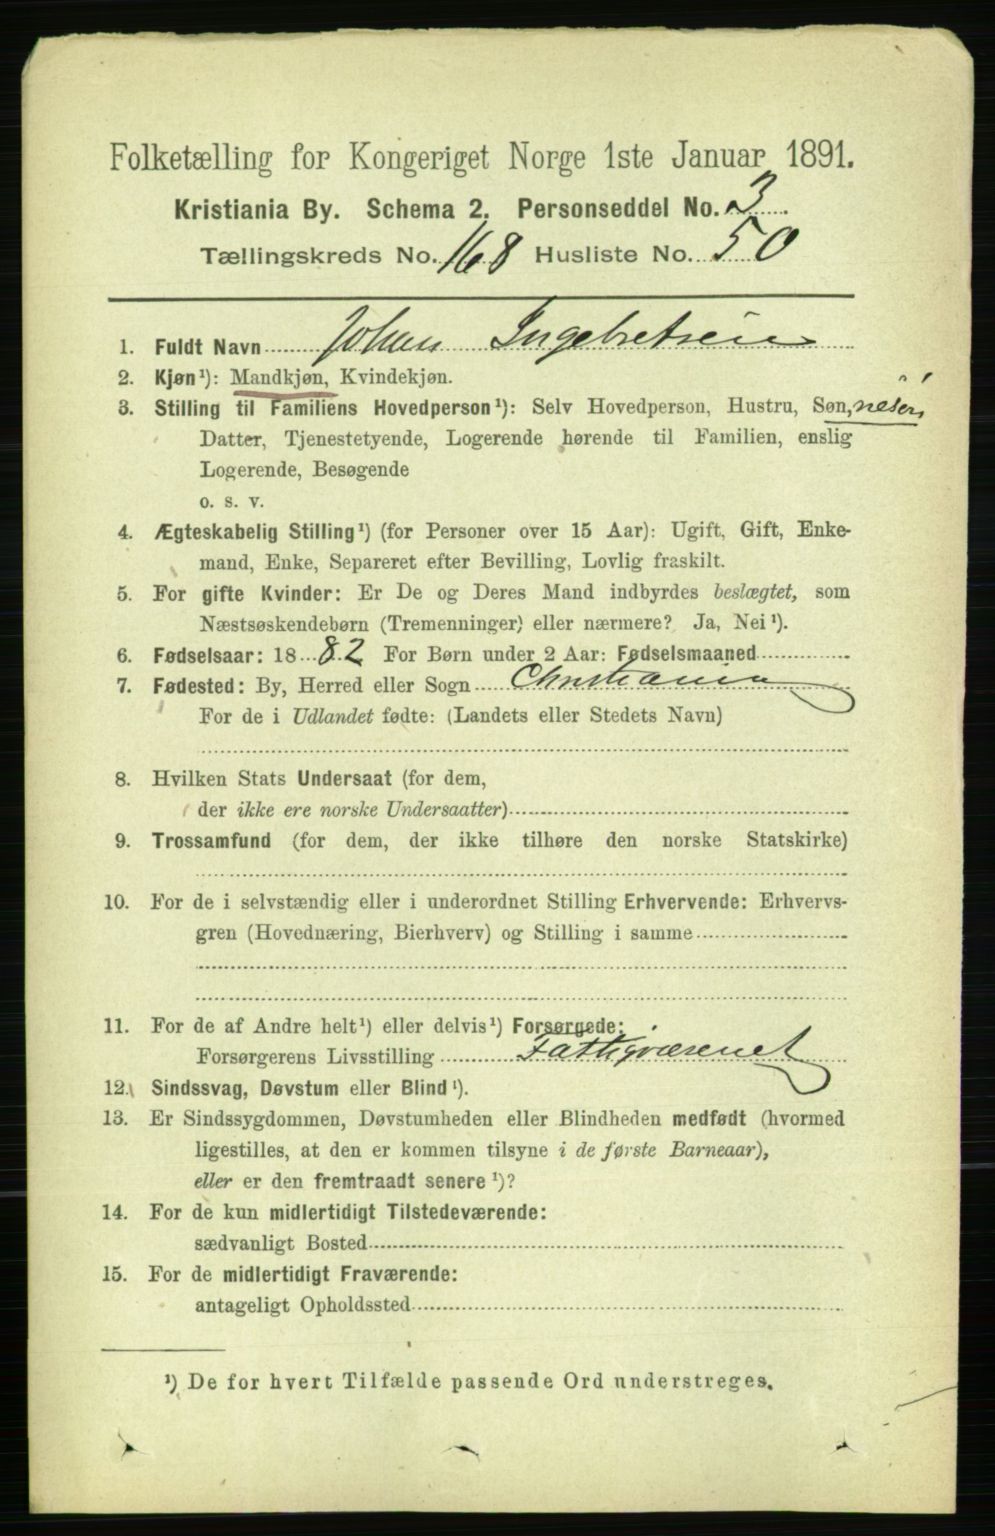 Folketælling for Kongeriget Norge 1ste Januar 1891.
Kristiania By. Schema 2. Personseddel No. 3
Tællingskreds No. 168 Husliste No. 50
1. Fuldt Navn Johan Ingebretsen
2. Kjøn¹): Mandkjøn, Kvindekjøn.
3. Stilling til Familiens Hovedperson¹): Selv Hovedperson, Hustru, Søn,
Datter, Tjenestetyende, Logerende hørende til Familien, enslig
Logerende, Besøgende
o. s. v.
4. Ægteskabelig Stilling¹) (for Personer over 15 Aar): Ugift, Gift, Enke-
mand, Enke, Separeret efter Bevilling, Lovlig fraskilt.
5. For gifte Kvinder: Er De og Deres Mand indbyrdes beslægtet, som
Næstsøskendebørn (Tremenninger) eller nærmere? Ja, Nei¹).
6. Fødselsaar: 1882 For Børn under 2 Aar: Fødselsmaaned
7. Fødested: By, Herred eller Sogn Christiania
For de i Udlandet fødte: (Landets eller Stedets Navn)
8. Hvilken Stats Undersaat (for dem,
der ikke ere norske Undersaatter)
9. Trossamfund (for dem, der ikke tilhøre den norske Statskirke)
10. For de i selvstændig eller i underordnet Stilling Erhvervende: Erhvervs-
gren (Hovednæring, Bierhverv) og Stilling i samme
11. For de af Andre helt¹) eller delvis¹) Forsørgede:
Forsørgerens Livsstilling Fattigvæsenet
12. Sindssvag, Døvstum eller Blind¹).
13. Er Sindssygdommen, Døvstumheden eller Blindheden medfødt (hvormed
ligestilles, at den er kommen tilsyne i de første Barneaar),
eller er den fremtraadt senere¹)?
14. For de kun midlertidigt Tilstedeværende:
sædvanligt Bosted
15. For de midlertidigt Fraværende:
antageligt Opholdssted
¹) De for hvert Tilfælde passende Ord understreges.